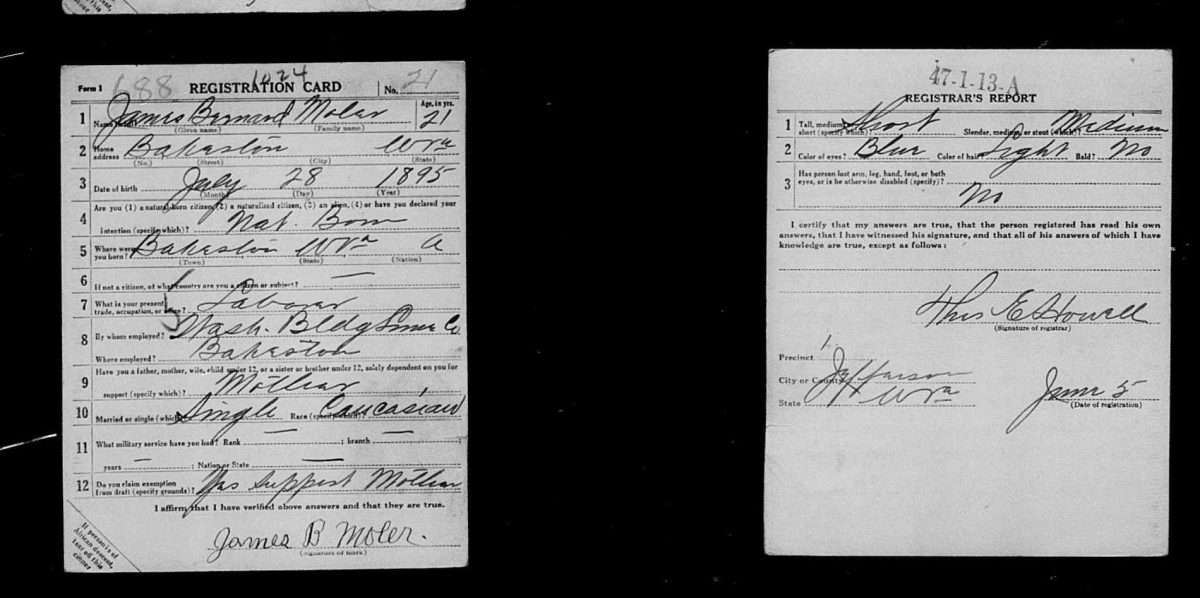 1024
Form 1 688 REGISTRATION CARD No. 21
1 James Bernard Moler Age, in yrs. 21
(Given name) (Family name)
2 Home address Bakerton W Va
(No.) (Street) (City) (State)
3 Date of birth July 28 1895
(Month) (Day) (Year)
Are you (1) a natural-born citizen, (2) a naturalized citizen, (3) an alien, (4) or have you declared your
4 intention (specify which)? Nat. Born
5 Where were you born? Bakerton W Va
(Town) (State) (Nation)
6 If not a citizen, of what country are you a citizen or subject? —
7 What is your present trade, occupation, or office? Laborer
8 By whom employed? Wash. Bldg Lime Co
Where employed? Bakerton
9 Have you a father, mother, wife, child under 12, or a sister or brother under 12, solely dependent on you for
support (specify which)? Mother
10 Married or single (which)? Single Race (specify which)? Caucasian
11 What military service have you had? Rank — ; branch —
years — ; Nation or State —
12 Do you claim exemption from draft (specify grounds)? Yes Support Mother
I affirm that I have verified above answers and that they are true.
James B Moler.
(Signature or mark)
If person is of
African descent,
tear off this
corner
47-1-13-A
REGISTRAR'S REPORT
1 Tall, medium, or short (specify which)? Short Slender, medium, or stout (which)? Medium
2 Color of eyes? Blue Color of hair? Light Bald? No
3 Has person lost arm, leg, hand, foot, or both
eyes, or is he otherwise disabled (specify)?
No
I certify that my answers are true, that the person registered has read his own
answers, that I have witnessed his signature, and that all of his answers of which I have
knowledge are true, except as follows:
Thos E Howell
(Signature of registrar)
Precinct 1
City or County Jefferson
State W Va
June 5
(Date of registration)